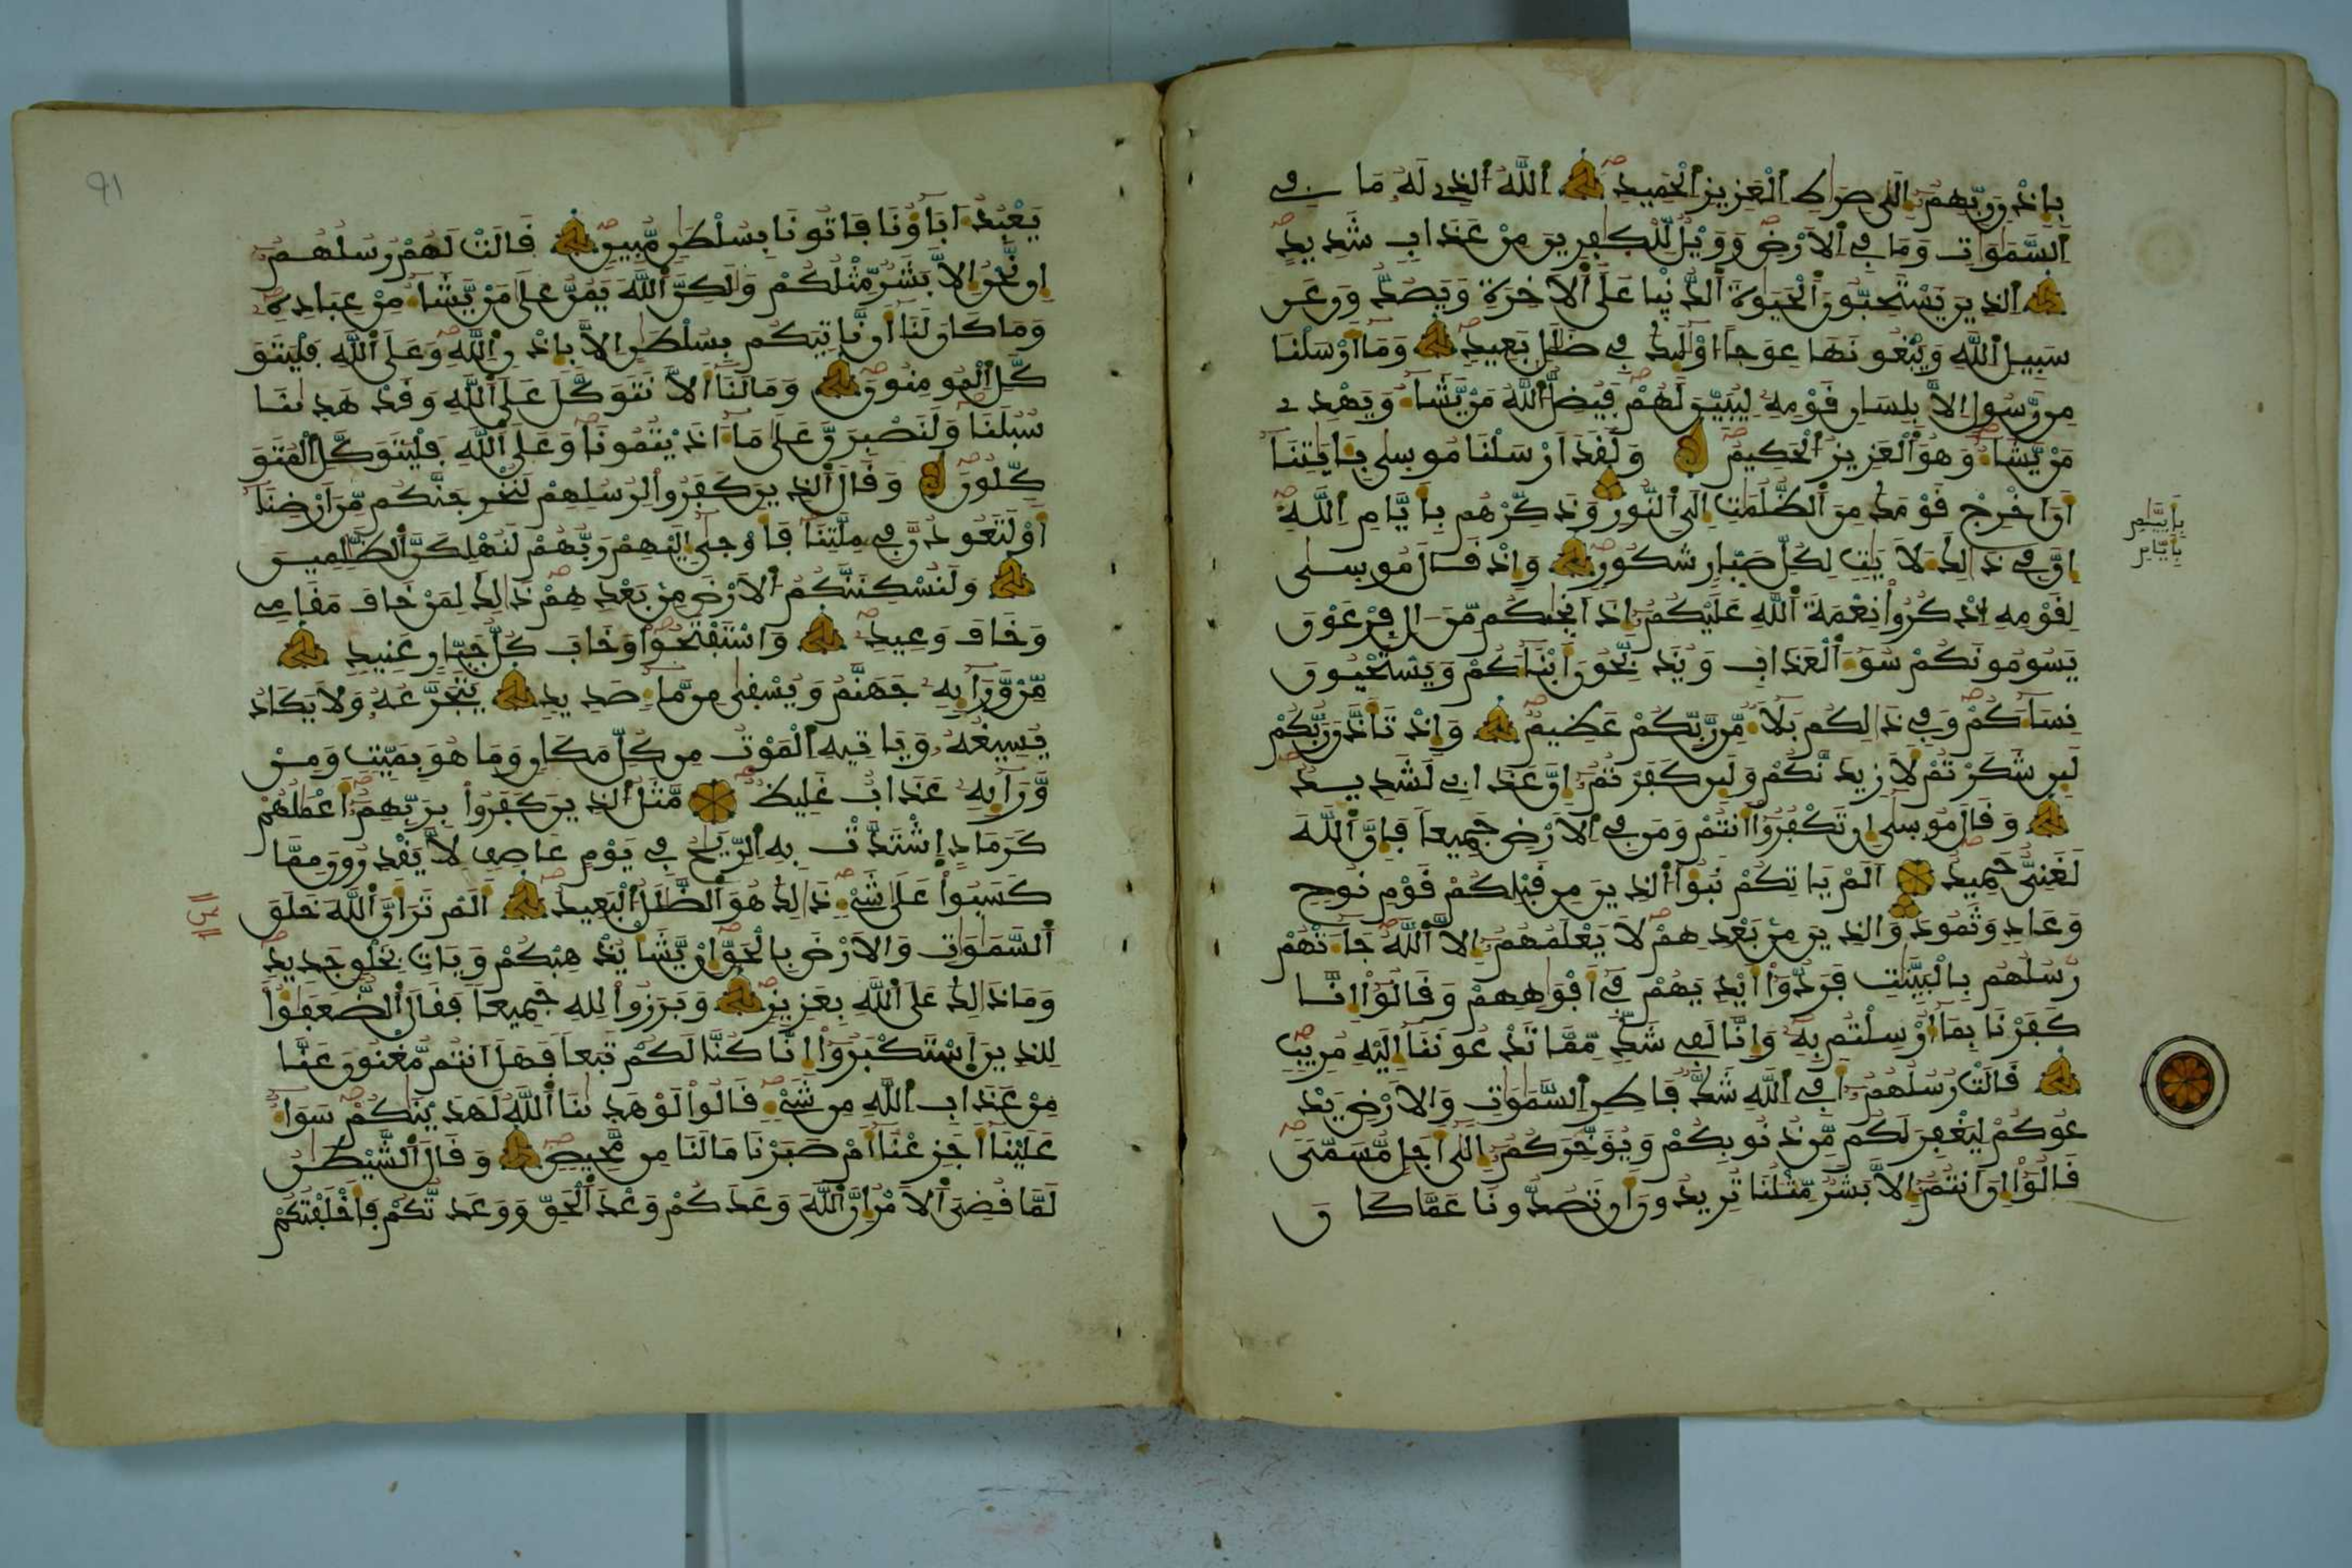 بإذن ربهم إلى صراط العزيز الحميد الله الذي له ما في
السموات وما في الأرض وويل للكفرين من عذاب شديد
الذين يستحبون الحيوة الدنيا على الآخرة ويصدون عن
سبيل الله ويبغونها عوجا أولئك في ضلل بعيد وما أرسلنا
من رسول إلا بلسان قومه ليبين لهم فيضل الله من يشاء ويهدي
من يشاء وهو العزيز الحكيم ولقد أرسلنا موسى بآيتنا
أن أخرج قومك من الظلمت إلى النور وذكرهم بأييم الله
إن في ذلك لآيت لكل صبار شكور وإذ قال موسى
لقومه اذكروا نعمة الله عليكم إذ أنجيكم من آل فرعون
يسومونكم سوء العذاب ويذبحون أبناءكم ويستحيون
نساءكم وفي ذلكم بلاء من ربكم عظيم وإذ تأذن ربكم
لئن شكرتم لأزيدنكم ولئن كفرتم إن عذابي لشديد
وقال موسى إن تكفروا أنتم ومن في الأرض جميعا فإن الله
لغني حميد ألم يأتكم نبؤا الذين من قبلكم قوم نوح
وعاد وثمود والذين من بعدهم لا يعلمهم إلا الله جاءتهم
رسلهم بالبينت فردوا أيديهم في أفوههم وقالوا إنا
كفرنا بما أرسلتم به وإنا لفي شك مما تدعوننا إليه مريب
قالت رسلهم أفي الله شك فاطر السموات والأرض يد
عوكم ليغفر لكم من ذنوبكم ويؤخركم إلى أجل مسمى
قالوا إن أنتم إلا بشر مثلنا تريدون أن تصدونا عما كان
بأييم
بأيام
91
يعبد آباؤنا فاتونا بسلطن مبين قالت لهم رسلهم
إن نحن إلا بشر مثلكم ولكن الله يمن على من يشاء من عباده
وما كان لنا أن نأتيكم بسلطن إلا بإذن الله وعلى الله فليتو
كل المومنون وما لنا ألا نتوكل على الله وقد هدينا
سبلنا ولنصبرن على ما آذيتمونا وعلى الله فليتوكل المتو
كلون وقال الذين كفروا لرسلهم لنخرجنكم من أرضنا
أو لتعودن في ملتنا فأوحى إليهم ربهم لنهلكن الظلمين
ولنسكننكم الأرض من بعدهم ذلك لمن خاف مقامي
وخاف وعيد واستفتحوا وخاب كل جبار عنيد
من ورائه جهنم ويسقى من ماء صديد يتجرعه ولا يكاد
يسيغه ويأتيه الموت من كل مكان وما هو بميت ومن
ورائه عذاب غليظ مثل الذين كفروا بربهم أعملهم
كرماد اشتدت به الريح في يوم عاصف لا يقدرون مما
كسبوا على شيء ذلك هو الضلل البعيد ألم تر أن الله خلق
السموات والأرض بالحق إن يشأ يذهبكم ويأت بخلق جديد
وما ذلك على الله بعزيز وبرزوا لله جميعا فقال الضعفؤا
للذين استكبروا إنا كنا لكم تبعا فهل أنتم مغنون عنا
من عذاب الله من شيء قالوا لو هدينا الله لهدينكم سواء
علينا أجزعنا أم صبرنا ما لنا من محيص وقال الشيطن
لما قضي الأمر إن الله وعدكم وعد الحق ووعدتكم فأخلفتكم